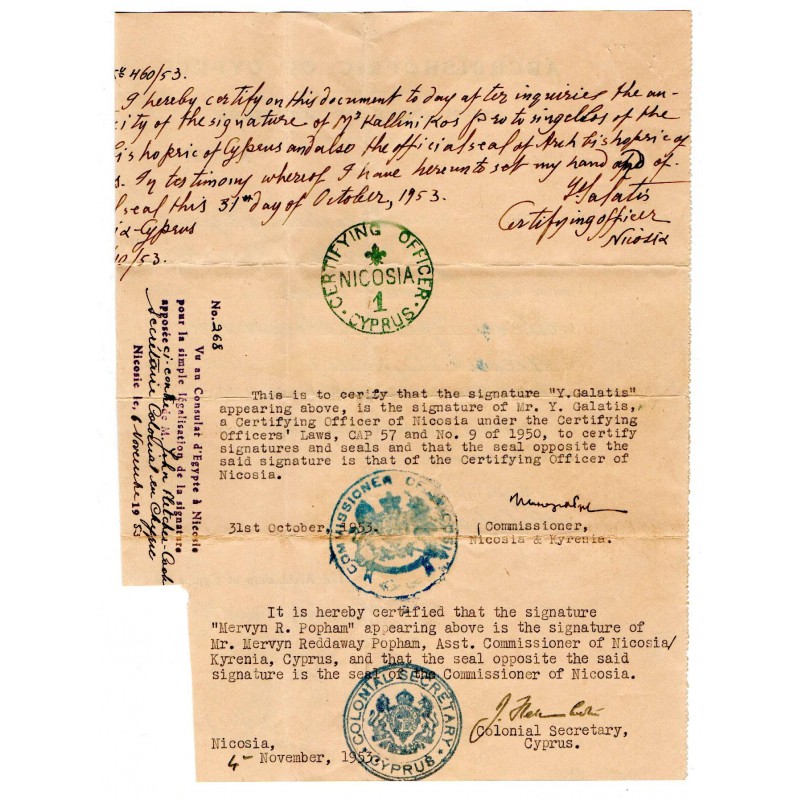 460/53.
I hereby certify on this document to day after inquiries the au-
city of the signature of Mr Kallinikos Protosingellos of the
ishopric of Cyprus and also the official seal of Archbishopric of
s. In testimony whereof I have hereunto set my hand and of-
l seal this 31st day of October, 1953.
Y. Galatis
ia-Cyprus
Certifying officer
Nicosia
10/53.
CERTIFYING OFFICER
NICOSIA
1
CYPRUS
No. 268
Vu au Consulat d'Egypte à Nicosie
pour la simple légalisation de la signature
apposée ci-contre M. John Fletcher-Cook
Secrétaire Colonial en Chypre
Nicosie le, 6 Novembre 1953
This is to cerify that the signature "Y.Galatis"
appearing above, is the signature of Mr. Y. Galatis,
a Certifying Officer of Nicosia under the Certifying
Officers' Laws, CAP 57 and No. 9 of 1950, to certify
signatures and seals and that the seal opposite the
said signature is that of the Certifying Officer of
Nicosia.
COMMISSIONER OF NICOSIA
31st October, 1953.
Commissioner,
Nicosia & Kyrenia.
It is hereby certified that the signature
"Mervyn R. Popham" appearing above is the signature of
Mr. Mervyn Reddaway Popham, Asst. Commissioner of Nicosia/
Kyrenia, Cyprus, and that the seal opposite the said
signature is the seal of the Commissioner of Nicosia.
COLONIAL SECRETARY
CYPRUS
Colonial Secretary,
Cyprus.
Nicosia,
4 November, 1953.